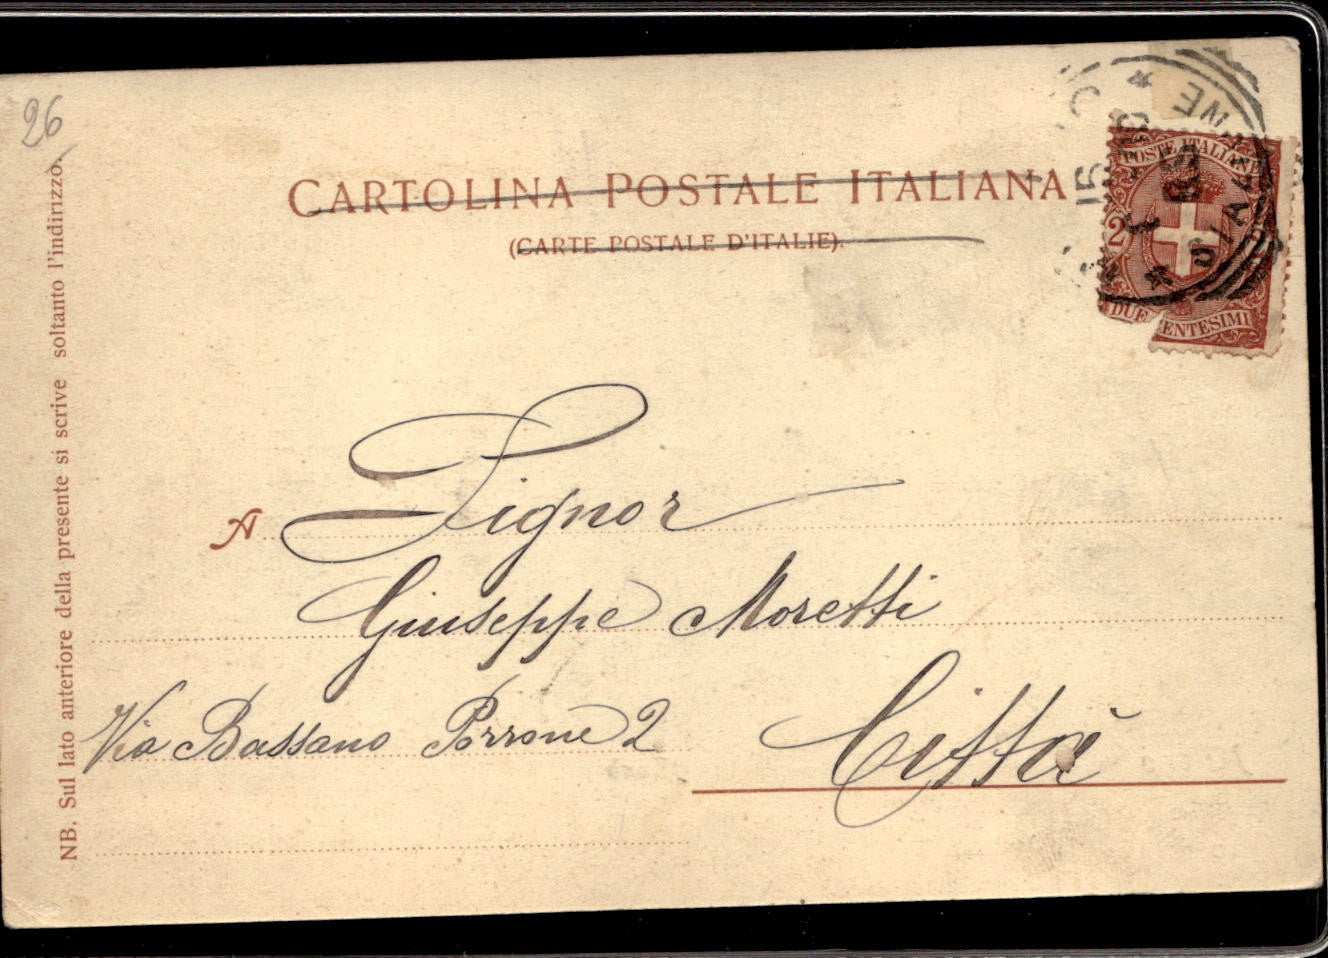 26
CARTOLINA POSTALE ITALIANA
(CARTE POSTALE D'ITALIE).
POSTE ITALIANE
2
DUE CENTESIMI
A Signor
Giuseppe Moretti
Via Bassano Porrone 2
Città
NB. Sul lato anteriore della presente si scrive soltanto l'indirizzo.